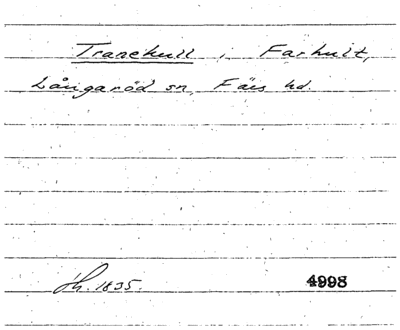 Tranekull i Farhult,
Långaröd sn, Färs hd.
fh. 1835. 4998